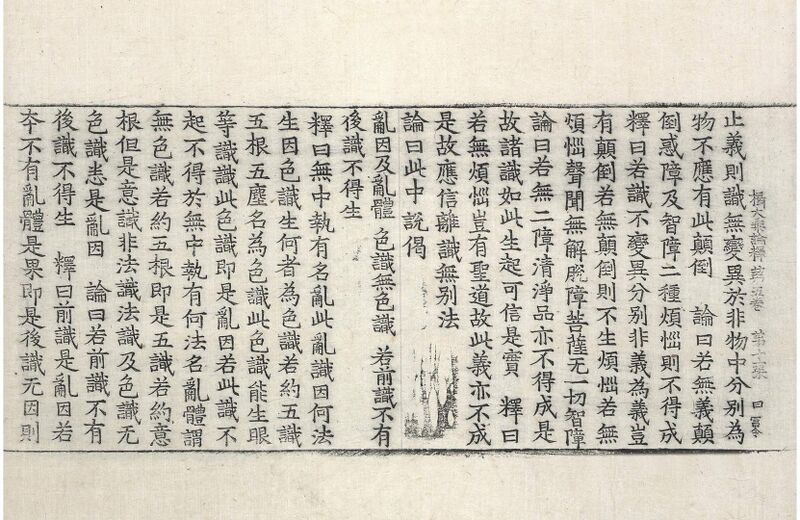 止義則識無變異於非物中分別為
攝大乘論釋 第五卷 第十張
物不應有此顛倒 論曰若無義顛
倒惑障及智障二種煩惱則不得成
釋曰若識不變異分別非義為義豈
有顛倒若無顛倒則不生煩惱若無
煩惱聲聞無解脫障菩薩无一切智障
論曰若無二障清淨品亦不得成是
故諸識如此生起可信是實 釋曰
若無煩惱豈有聖道故此義亦不成
是故應信離識無別法
論曰此中說偈
亂因及亂體 色識無色識 若前識不有
後識不得生
釋曰無中執有名亂此亂識因何法
生因色識生何者為色識若約五識
五根五塵名為色識此色識能生眼
等識識此色識即是亂因若此識不
起不得於無中執有何法名亂體謂
無色識若約五根即是五識若約意
根但是意識非法識法識及色識无
色識悉是亂因 論曰若前識不有
後識不得生 釋曰前識是亂因若
夲不有亂體是果即是後識无因則